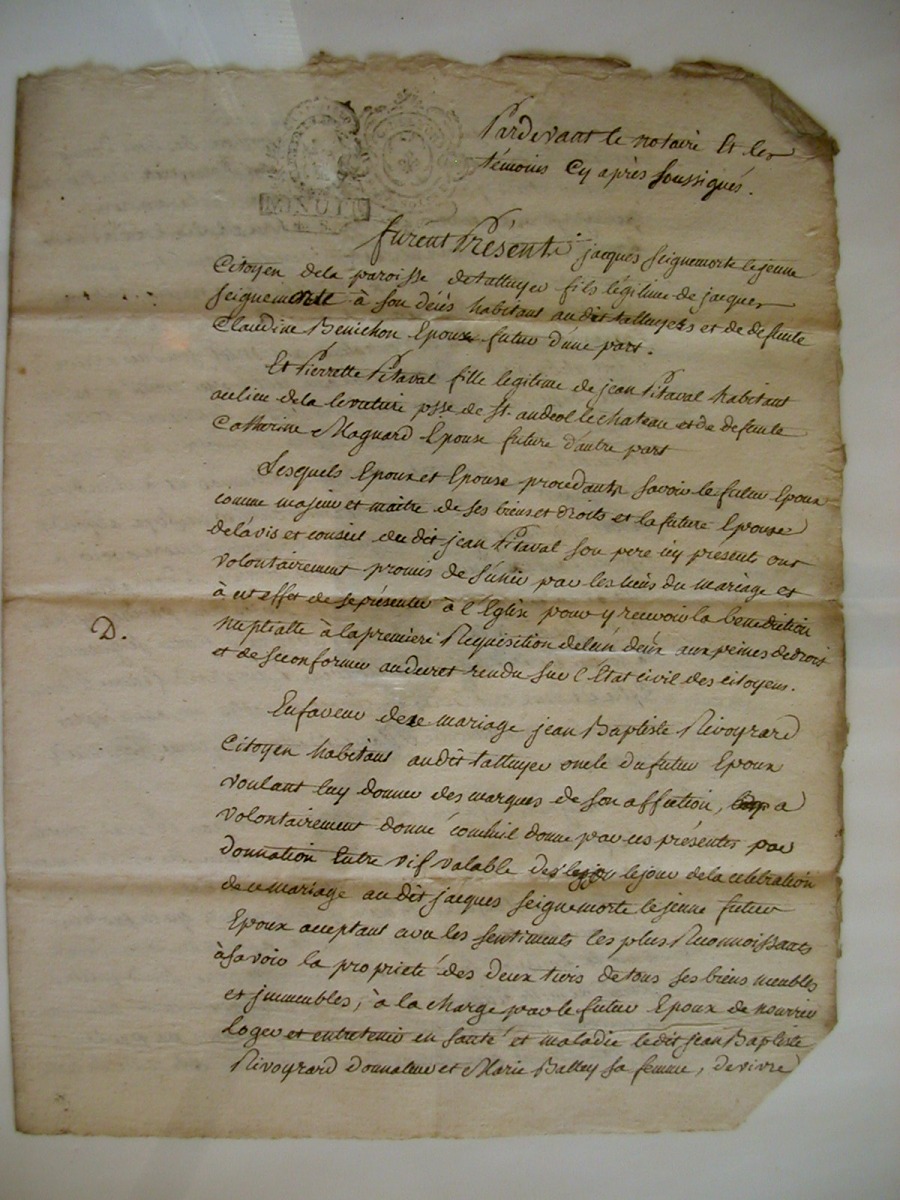 MINUTE
Pardevant le notaire Et les
témoins Cy après soussignés.
furent Présents jacques seignemorte le jeune
Citoyen de la paroisse de talluyer fils légitime de jacques
seignemorte à son décès habitant audit talluyers et de defunte
Claudine Benichon Epoux futur d'une part.
Et Pierrette Pitaval fille legitime de jean Pitaval habitant
au lieu de la psse de St. andeol le chateau et de defunte
Catherine Magnard Epouse future d'autre part
Lesquels Epoux et Epouse procedants savoir le futur Epoux
comme majeur et maitre de ses biens et droits et la future Epouse
de l'avis et conseil dudit jean Pitaval son pere icy présents ont
volontairement promis de s'unir par les liens du mariage et
à cet effet de se présenter à l'Eglise pour y recevoir la benediction
nuptialle à la premiere Requisition de l'un d'eux aux peines de droit
D.
et de se conformer au decret rendu sur l'Etat civil des citoyens.
En faveur de ce mariage jean Baptiste Rivoyrard
Citoyen habitant audit talluyer oncle du futur Epoux
voulant luy donner des marques de son affection, a
volontairement donné comme il donne par ces présentes par
donnation Entre vif valable dès le jour de la celebration
de ce mariage audit jacques seignemorte le jeune futur
Epoux acceptant avec les sentiments les plus Reconnoissants
à savoir la propriété des deux tiers de tous ses biens meubles
et jmmeubles, à la charge par le futur Epoux de nourrir
loger et entretenir en santé et maladie ledit jean Baptiste
Rivoyrard donnateur et Marie Balley sa femme, de vivre